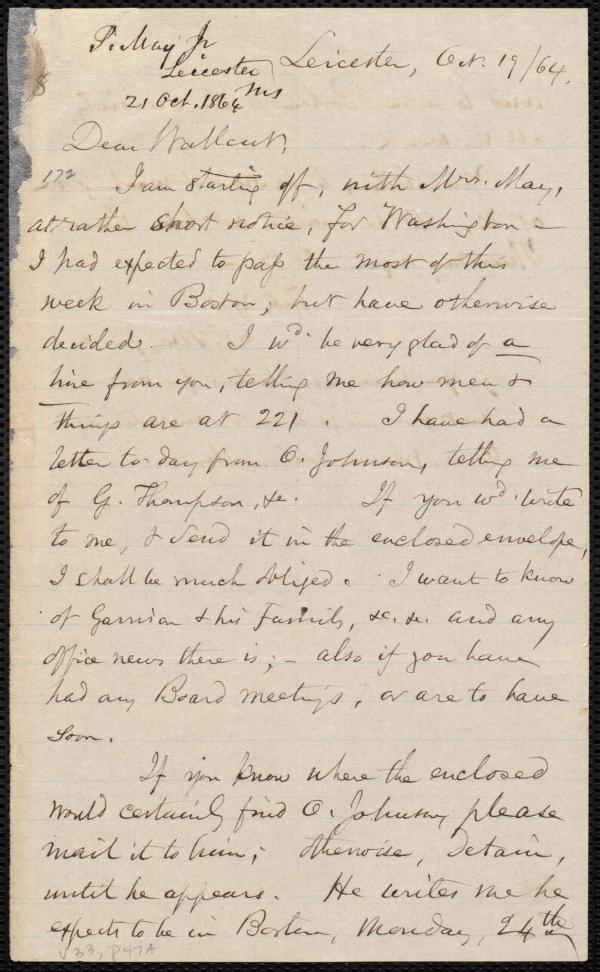 S. May Jr
Leicester
Ms
21 Oct. 1864
Leicester, Oct. 19/64.
8
Dear Wallcut,
172
I am starting off, with Mrs. May,
at rather short notice, for Washington –
I had expected to pass the most of this
week in Boston; but have otherwise
decided. I wd. be very glad of a
line from you, telling me how men &
things are at 221. I have had a
letter to-day from O. Johnson, telling me
of G. Thompson, &c. If you wd. write
to me, & send it in the enclosed envelope,
I shall be much obliged. I want to know
of Garrison & his family, &c. &c. and any
office news there is; – also if you have
had any Board meetings, or are to have
soon.
If you know where the enclosed
would certainly find O. Johnson, please
mail it to him; otherwise, detain,
until he appears. He writes me he
expects to be in Boston, Monday, 24th
V 33, P97A